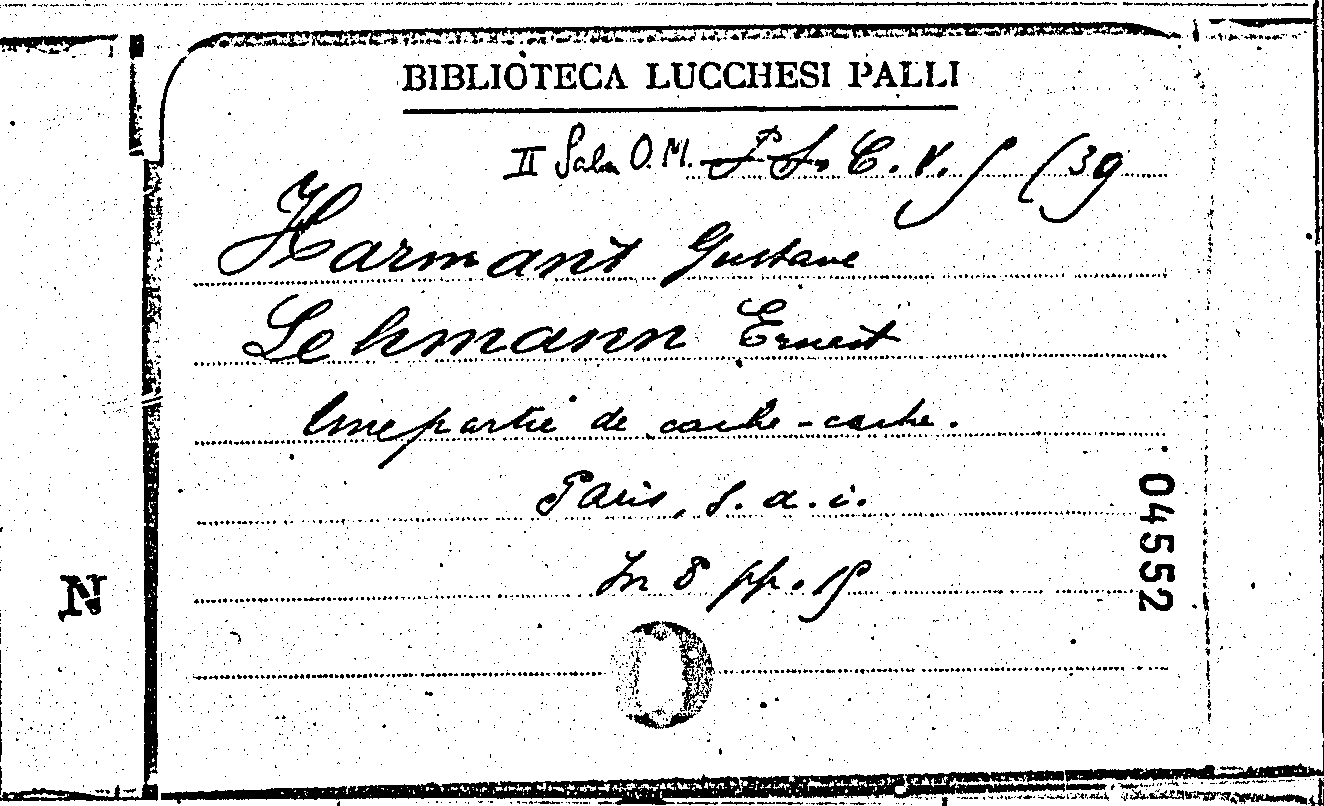 BIBLIOTECA LUCCHESI PALLI
II Sala O. M. P. S. C. V. 5 (39
Harmant Gustave
Lehmann Ernest
Une partie de cache-cache.
Paris, s. a. i.
In 8 pp. 15
04552
N